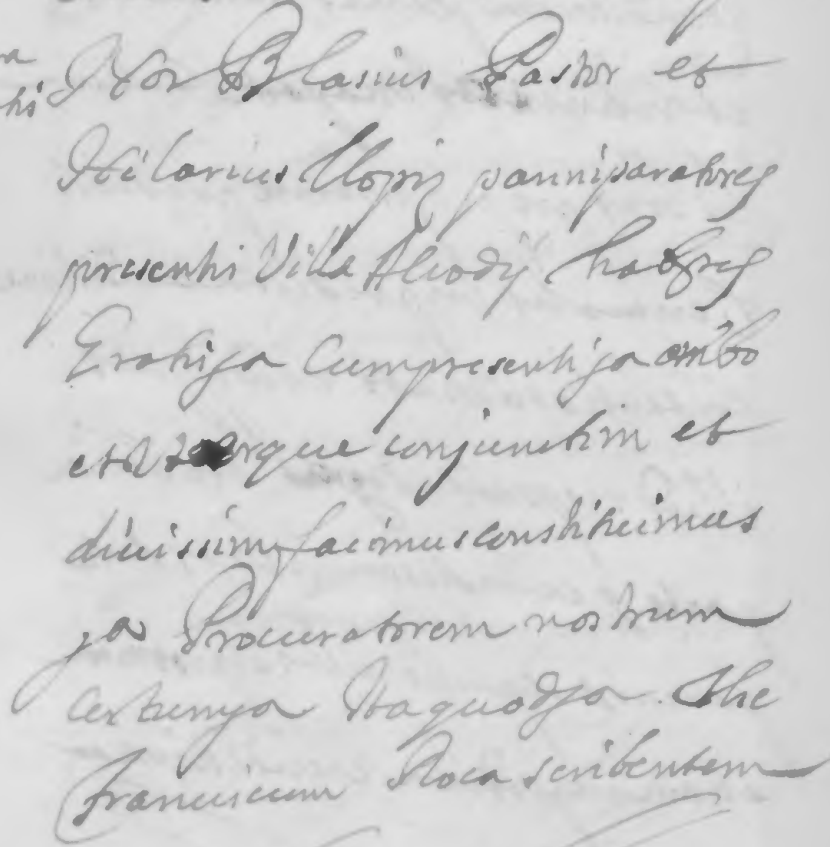 Nos Blasius Pastor et
Hilarius Llopiz panniparatores
presenti Villa Alcodij habres
Gratis ja Cum presenti ja ambo
et Uterque conjunctim et
diuissim facimus constituimus
ja Procuratorem nostrum
certum ja Ita quod ja the
franciscum Roca scribentem